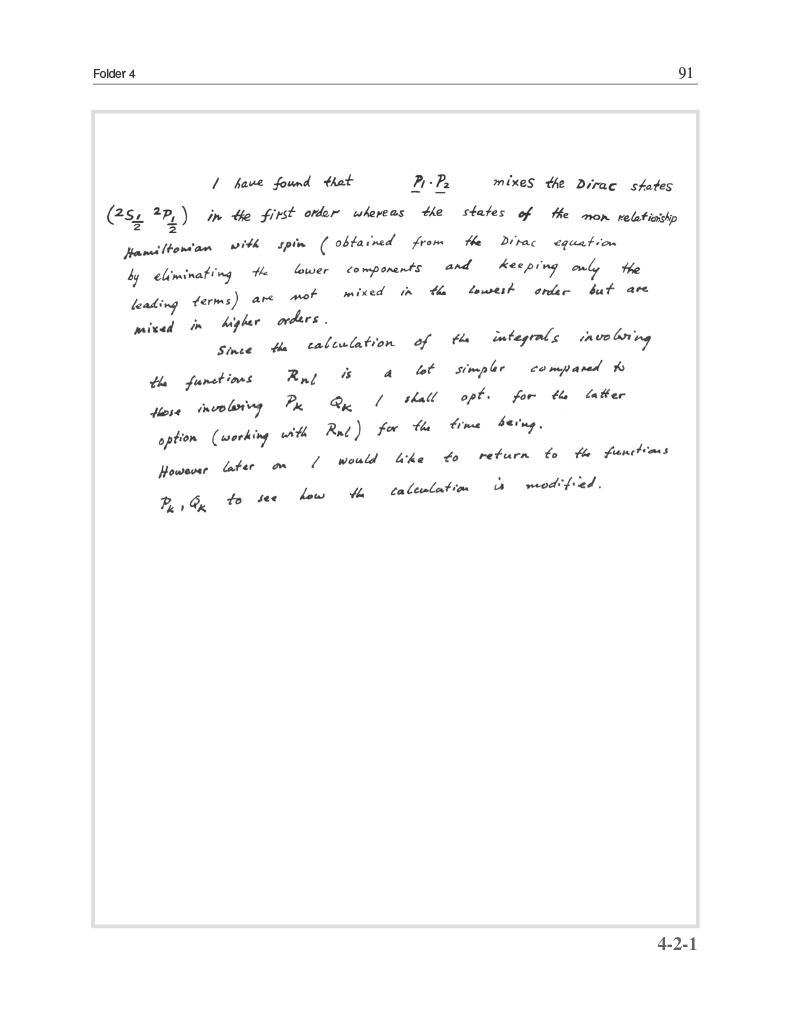 Folder 4
91
I have found that P1 · P2 mixes the Dirac states
(2S1/2 2P1/2) in the first order whereas the states of the non relationship
Hamiltonian with spin (obtained from the Dirac equation
by eliminating the lower components and keeping only the
leading terms) are not mixed in the lowest order but are
mixed in higher orders.
Since the calculation of the integrals involving
the functions Rnl is a lot simpler compared to
those involving PK QK I shall opt. for the latter
option (working with Rnl) for the time being.
However later on I would like to return to the functions
PK, QK to see how the calculation is modified.
4-2-1